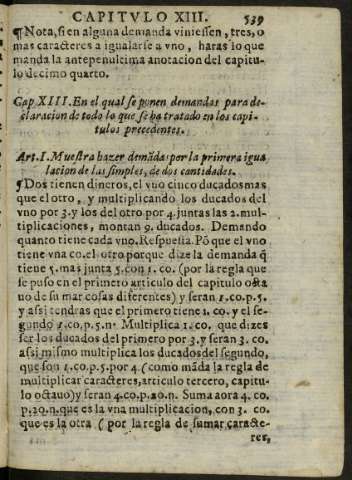 CAPITVLO XIII. 539
¶Nota, si en alguna demanda viniessen, tres, o
mas caracteres a igualarse a vno, haras lo que
manda la antepenultima anotacion del capitu-
lo decimo quarto.
Cap XIII. En el qual se ponen demandas para de-
claracion de todo lo que se ha tratado en los capi-
tulos precedentes.
Art. I. Muestra hazer demãdas por la primera igua
lacion de las simples, de dos cantidades.
¶Dos tienen dineros, el vno cinco ducados mas
que el otro, y multiplicando los ducados del
vno por 3. y los del otro por 4. juntas las 2. mul-
tiplicaciones, montan 9. ducados. Demando
quanto tiene cada vno. Respuesta. Põ que el vno
tiene vna co. el otro porque dize la demanda q̃
tiene 5. mas junta 5. con 1. co. (por la regla que
se puso en el primero articulo del capitulo octa
uo de sumar cosas diferentes) y seran 1. co. p. 5.
y assi tendras que el primero tiene 1. co. y el se-
gundo 1. co. p. 5. nº Multiplica 1. co. que dizes
ser los ducados del primero por 3. y seran 3. co.
assi mismo multiplica los ducados del segundo,
que son 1. co. p. 5. por 4. (como mãda la regla de
multiplicar caracteres, articulo tercero, capitu-
lo octauo) y seran 4. co. p. 20. n. Suma aora 4. co.
p. 20. n. que es la vna multiplicacion, con 3. co.
que es la otra ( por la regla de sumar caracte-
res,